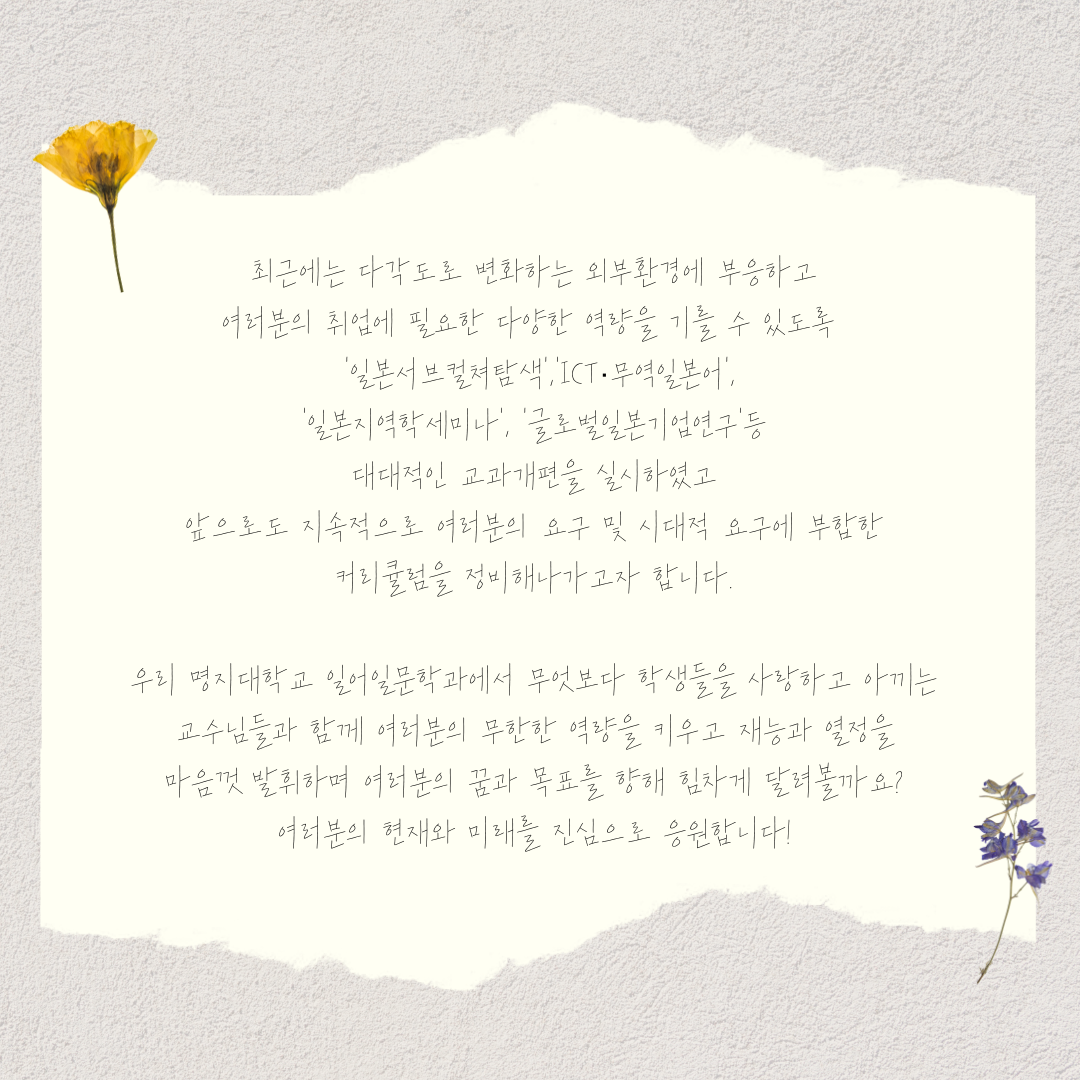 최근에는 다각도로 변화하는 외부환경에 부응하고
여러분의 취업에 필요한 다양한 역량을 기를 수 있도록
'일본서브컬쳐탐색','ICT•무역일본어',
'일본지역학세미나', '글로벌일본기업연구'등
대대적인 교과개편을 실시하였고
앞으로도 지속적으로 여러분의 요구 및 시대적 요구에 부합한
커리큘럼을 정비해나가고자 합니다.
우리 명지대학교 일어일문학과에서 무엇보다 학생들을 사랑하고 아끼는
교수님들과 함께 여러분의 무한한 역량을 키우고 재능과 열정을
마음껏 발휘하며 여러분의 꿈과 목표를 향해 힘차게 달려볼까요?
여러분의 현재와 미래를 진심으로 응원합니다!